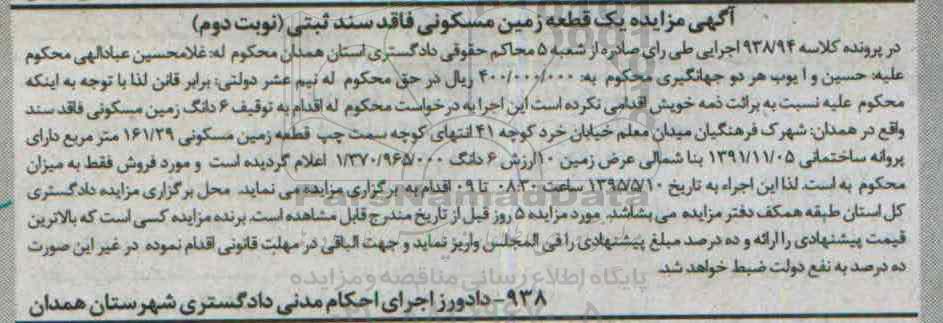 آگهی مزایده یک قطعه زمین مسکونی فاقد سند ثبتی (نوبت دوم)
در پرونده کلاسه ۹۳۸/۹۴ اجرایی طی رای صادره از شعبه ۵ محاکم حقوقی دادگستری استان همدان محکوم له: غلامحسین عبادالهی محکوم
علیه: حسین و ا یوب هر دو جهانگیری محکوم به: ۴۰۰/۰۰۰/۰۰۰ ریال در حق محکوم له نیم عشر دولتی: برابر قانن لذا با توجه به اینکه
محکوم علیه نسبت به برائت ذمه خویش اقدامی نکرده است این اجرا به درخواست محکوم له اقدام به توقیف ۶ دانگ زمین مسکونی فاقد سند
واقع در همدان: شهرک فرهنگیان میدان معلم خیابان خرد کوچه ۴۱ انتهای کوچه سمت چپ قطعه زمین مسکونی ۱۶۱/۲۹ متر مربع دارای
پروانه ساختمانی ۱۳۹۱/۱۱/۰۵ بنا شمالی عرض زمین ۱۰ ارزش ۶ دانگ ۱/۳۷۰/۹۶۵/۰۰۰ اعلام گردیده است و مورد فروش فقط به میزان
محکوم به است. لذا این اجراء به تاریخ ۱۳۹۵/۵/۱۰ ساعت ۰۸:۳۰ تا ۰۹ اقدام به برگزاری مزایده می نماید. محل برگزاری مزایده دادگستری
کل استان طبقه همکف دفتر مزایده می بشاشد. مورد مزایده ۵ روز قبل از تاریخ مندرج قابل مشاهده است. برنده مزایده کسی است که بالاترین
قیمت پیشنهادی را ارائه و ده درصد مبلغ پیشنهادی را فی المجلس واریز نماید و جهت الباقی در مهلت قانونی اقدام نموده در غیر این صورت
ده درصد به نفع دولت ضبط خواهد شد.
پایگاه اطلاع رسانی مناقصه و مزایده
۹۳۸- دادورز اجرای احکام مدنی دادگستری شهرستان همدان
ParsNamadData